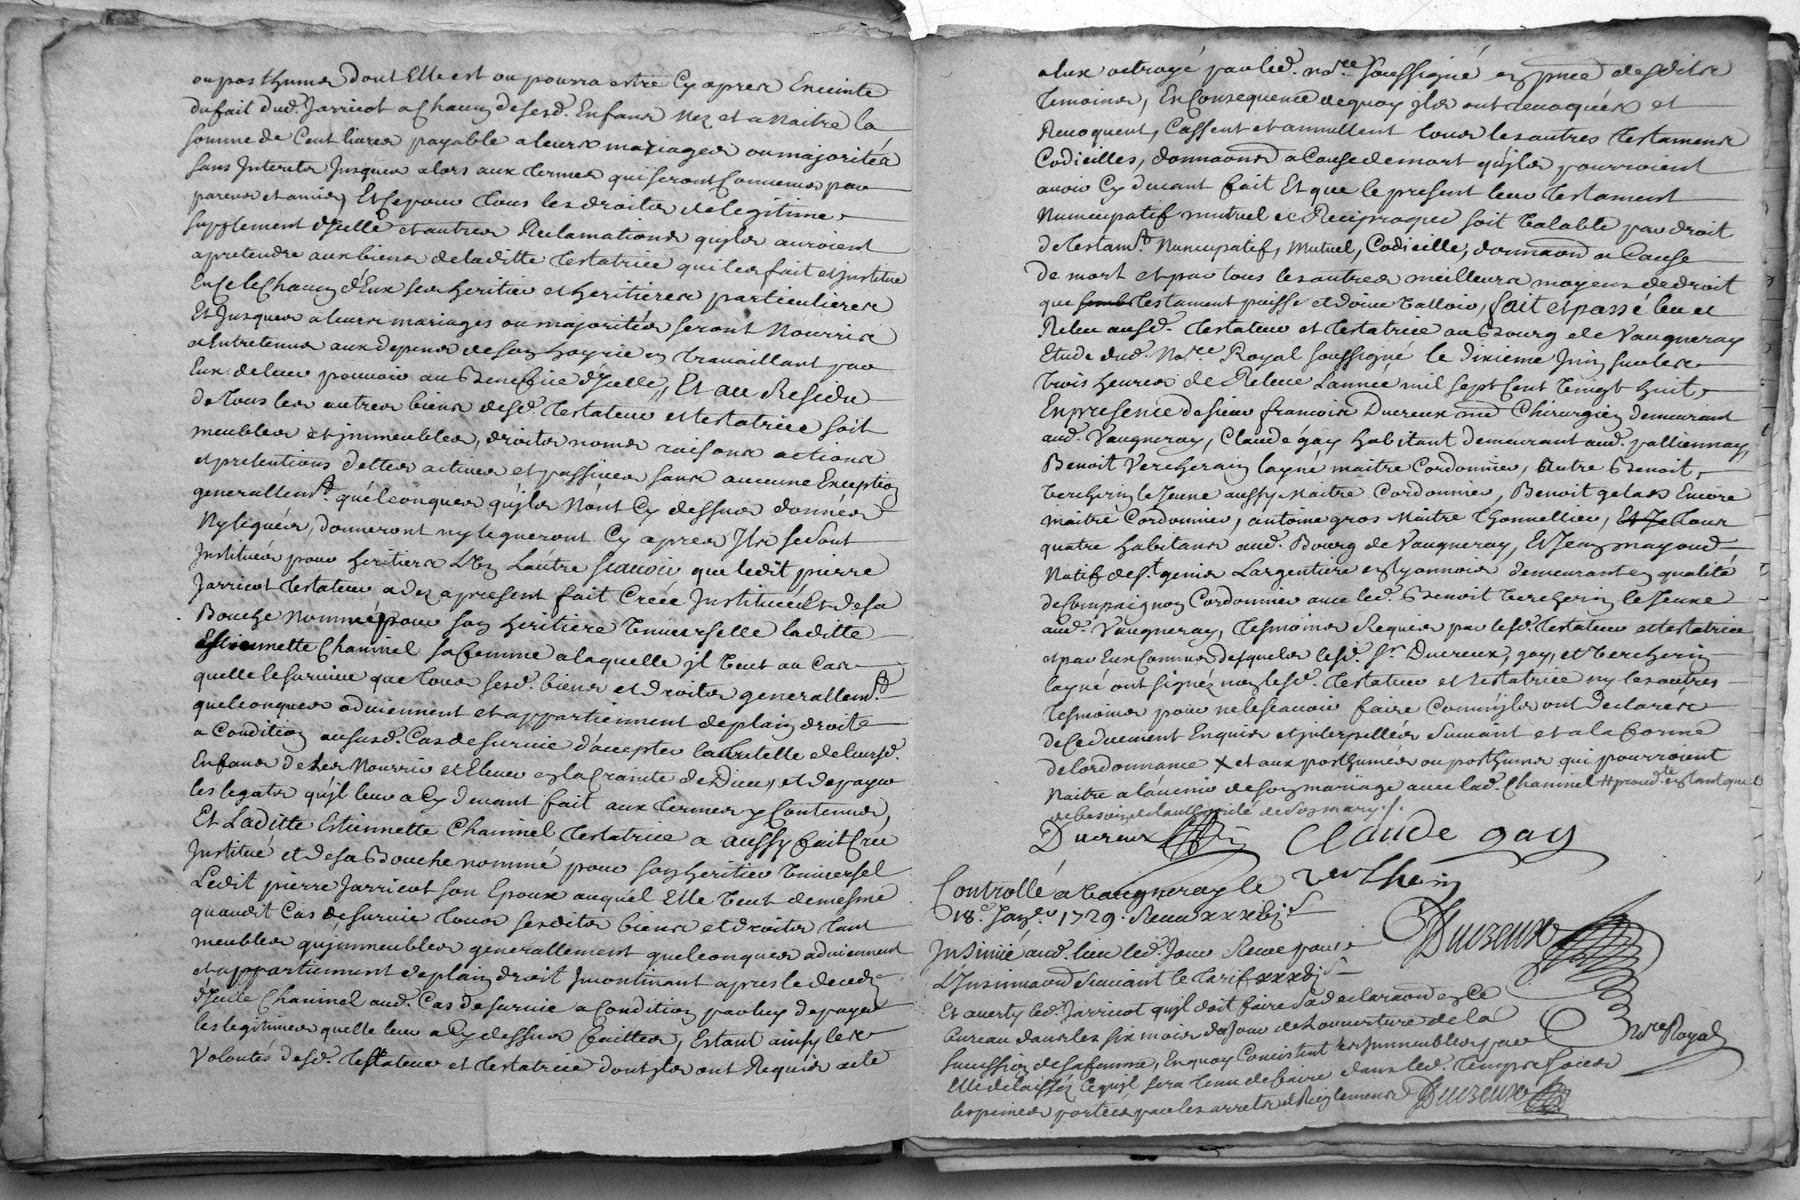 ou posthumes dont Elle est ou pourra estre Cy apres Enceinte
du fait dud. Jarricot a Chacun de sesd. Enfans Nez et a Naitre la
somme de Cent livres payable a leurs mariages ou majorités
sans Interets Jusques alors aux termes qui seront Convenus par
parens et amis, Et ce pour tous les droits de legitime
supplement d'Icelle et autres Reclamations qu'ils auroient
a pretendre aux biens de laditte testatrice qui les fait et institue
En ce le Chacun d'Eux ses heritiers et heritieres particulieres
Et Jusques a leurs mariages ou majorités seront Nourris
et Entretenus aux depens de son hoyrie en travaillant par
Eux de leur pouvoir au Benefice d'Icelle, Et au Residu
de tous les autres biens desd. testateur et testatrice soit
meubles et immeubles, droits noms raisons actions
et pretentions dettes actives et passives sans aucune Exception
generallemt. quelconques qu'ils N'ont Cy dessus donnés
Ny legués, donneront ny legueront Cy apres Ils se sont
Institués pour heritiers L'un L'autre scavoir que ledit pierre
Jarricot testateur a dez a present fait Creé Institué et de sa
Bouche Nommé pour son heritiere universelle laditte
Estiennette Chaninel sa femme a laquelle il veut au Cas
quelle le survive que tous sesd. biens et droits generallemt.
quelconques adviennent et appartiennent de plain droit
a Condition aususd. Cas de survie d'accepter la tutelle de leursd.
Enfans de les Nourrir et Elever en la Crainte de Dieu, et de payer
les legats qu'il leur a Cy devant fait aux termes y Contenus,
Et Laditte Estiennette Chaninel testatrice a aussy fait Creé
Institué et de sa Bouche nommé pour son heritier universel
Ledit pierre Jarricot son Epoux auquel Elle veut de mesme
quaudit Cas de survie tous sesdits biens et droits tant
meubles qu'immeubles generallement quelconques adviennent
et appartiennent de plain droit Incontinant apres le deceds
d'Icelle Chaninel aud. Cas de survie a Condition par luy de payer
les legitimes quelle leur a Cy dessus faittes, Estant ainsy les
Volontés desd. testateur et testatrice dont ils ont Requis acte
a Eux octroyé par led. nore. soussigné en pnce desdits
temoins, En Consequence de quoy ils ont revoqués et
Revoquent, Cassent et annullent tous les autres testamens
Codicilles, donnaons a Cause de mort qu'ils pourroient
avoir Cy devant fait Et que le present leur testament
Nuncupatif mutuel et Reciproque soit Valable par droit
de testamt. Nuncupatif, Mutuel, Codicille, donnaon a Cause
de mort et par tous les autres meilleurs moyens de droit
que testament puisse et doive valloir, fait et passé leu et
Releu ausd. testateur et testatrice au Bourg de Vaugneray
Etude dud. Nore. Royal soussigné le dixieme Juin sur les
trois heures de Releve L'année mil sept Cent Vingt huit
En presence de sieur francois Ducreux md Chirurgien demeurant
aud. Vaugneray, Claude gay habitant demeurant aud. pallionnay,
Benoit Vercherain layné maitre Cordonnier, autre Benoit
Vercherin le Jeune aussy Maitre Cordonnier, Benoit gelas Encore
maitre Cordonnier, antoine gros Maitre thonnellier, Et Je tous
quatre habitans aud. Bourg de Vaugneray, Et Jean mayoud
Natif de St. genis Largentiere en lyonnois demeurant en qualité
de Compaignon Cordonnier avec led. Benoit Vercherin le Jeune
aud. Vaugneray, tesmoins Requis par lesd. testateur et testatrice
et par Eux Connus desquels lesd. sr. Ducreux, gay, et Vercherin
layné ont signés non lesd. testateur et testatrice ny les autres
tesmoins pour ne le scavoir faire Comm'ils ont declarés
de Ce duement Enquis et interpellés suivant et a la forme
de lordonnance X et aux posthumes ou posthume qui pourroient
Naitre a lavenir de son mariage avec lad. Chaninel # en tant que
de besoin de lauthorité de son mary ./.
Ducreux Claude gay
verchein
Controllé a Vaugneray le
18e. Janer. 1729. Receu xxxvi s
Insinué aud. lieu led. Jour Receu pour
L'Insinuaon suivant le tarif xxxvi s
Et averty led. Jarricot qu'il doit faire sa declaraon en Ce
bureau dans les six mois du Jour de Louverture de la
succession de sa femme, En quoy Consistent les Immeubles par
Elle delaissés Ce qu'il sera tenu de faire dans led. temps sous
les peines portées par les arrets et Reiglemens Ducreux
Ducreux
Nore. Royal